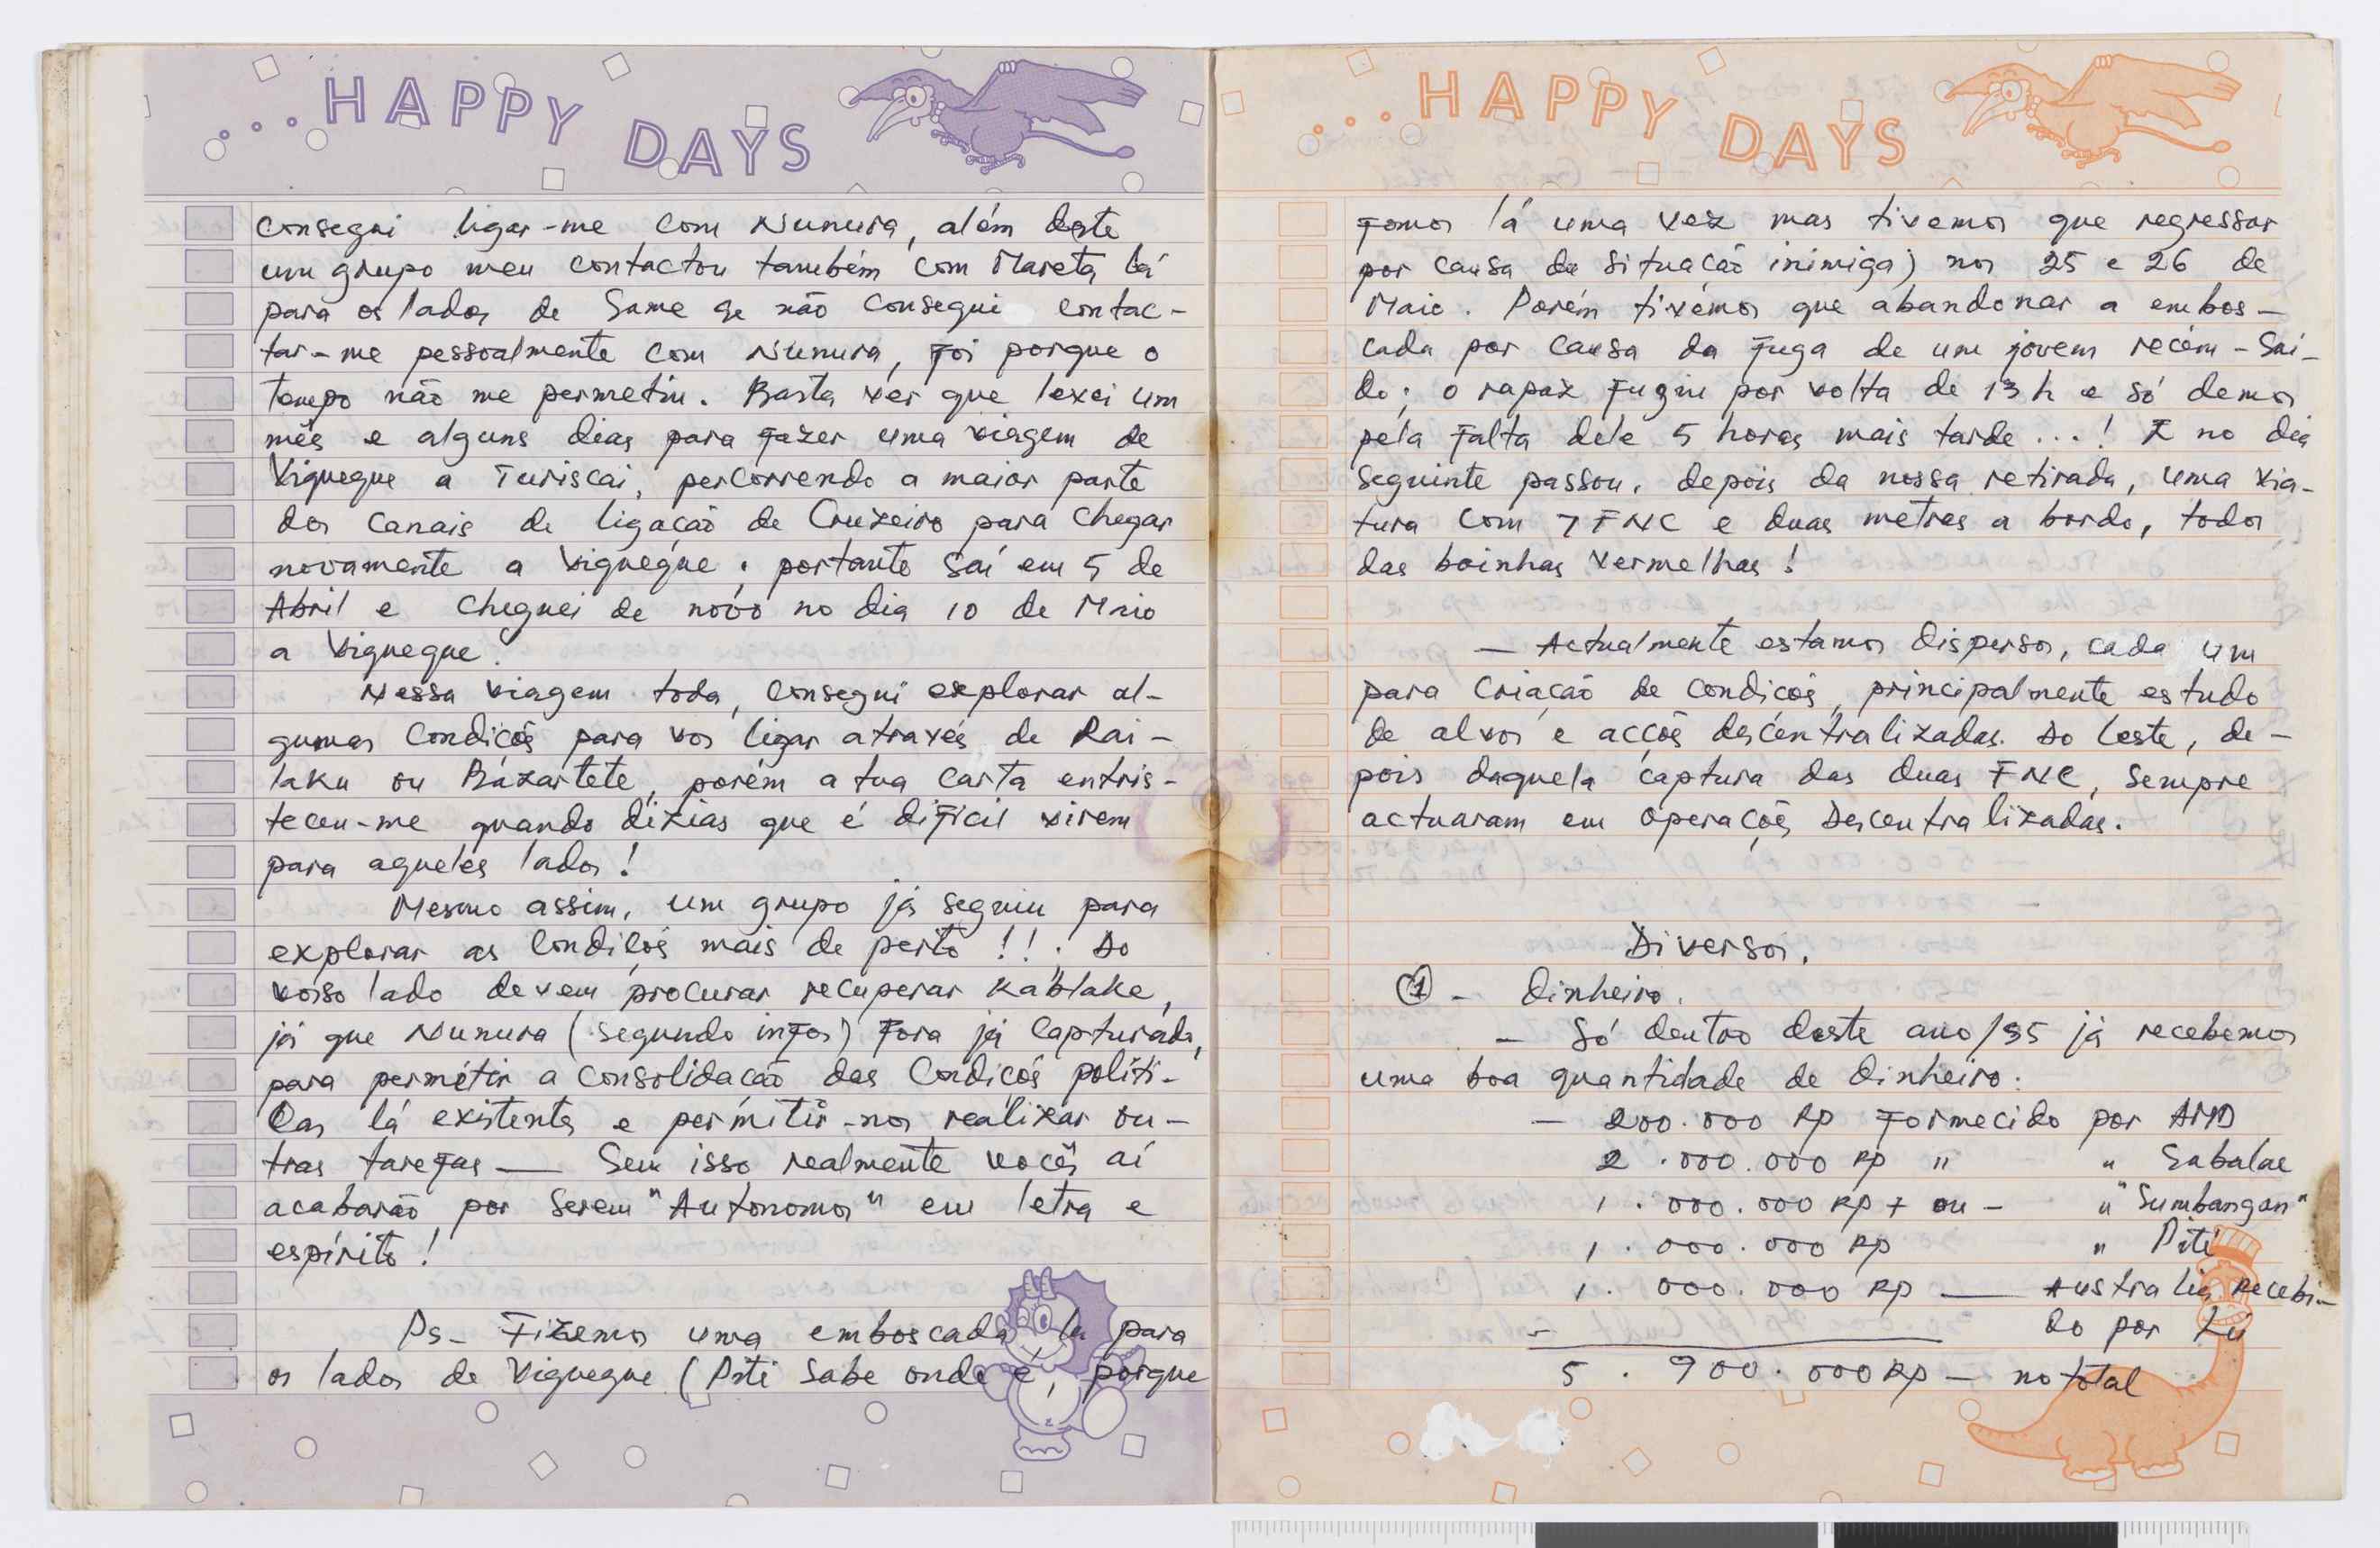 ...HAPPY DAYS
consegui ligar-me com Nunura, além deste
um grupo meu contactou também com Mareta lá
para os lados de Same se não consegui contac-
tar-me pessoalmente com Nunura, foi porque o
tempo não me permetiu. Basta ver que levei um
mês e alguns dias para fazer uma viagem de
Viqueque a Turiscai, percorrendo a maior parte
dos canais de ligação de Cruzeiro para chegar
novamente a Viqueque; portanto saí em 5 de
Abril e cheguei de novo no dia 10 de Maio
a Viqueque.
Nessa viagem toda, consegui explorar al-
gumas condições para vos ligar através de Rai-
laku ou Bazartete, porém a tua carta entris-
teceu-me quando dizias que é difícil virem
para aqueles lados!
Mesmo assim, um grupo já seguiu para
explorar as condições mais de perto!!. Do
vosso lado devem procurar recuperar Kablake,
já que Nunura (segundo infos) fora já capturada,
para permitir a consolidação das condições políti-
cas lá existentes e permitir-nos realizar ou-
tras tarefas — Sem isso realmente vocês aí
acabarão por serem "Autonomos" em letra e
espírito!
Ps- Fizemos uma emboscada, lá para
os lados de Viqueque (Piti sabe onde é, porque
...HAPPY DAYS
fomos lá uma vez mas tivemos que regressar
por causa da situação inimiga) nos 25 e 26 de
Maio. Porém tivémos que abandonar a embos-
cada por causa da fuga de um jovem recém-saí-
do; o rapaz fugiu por volta de 13h e só demos
pela falta dele 5 horas mais tarde...! E no dia
seguinte passou, depois da nossa retirada, uma via-
tura com 7 FNC e duas metras a bordo, todos
das boinhas vermelhas!
— Actualmente estamos dispersos, cada um
para criação de condições, principalmente estudo
de alvos e acções descentralizadas. Do leste, de-
pois daquela captura das duas FNC, sempre
actuaram em operações descentralizadas.
Diversos.
1 - Dinheiro.
- Só dentro deste ano/95 já recebemos
uma boa quantidade de dinheiro:
- 200.000 Rp formecido por AMD
2.000.000 Rp " " Sabalae
1.000.000 Rp + ou - " "Sumbangan"
1.000.000 Rp " Piti
1.000.000 Rp — Australia recebi-
do por Lu
5.900.000 Rp — no total